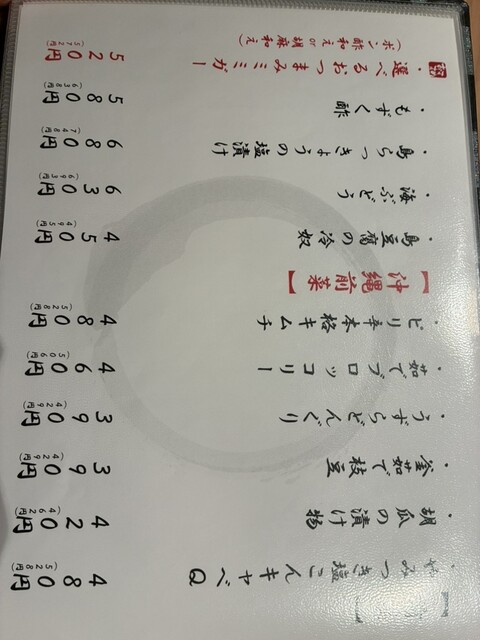 ・やみつき塩こんキャベQ 480円
(528円)
・胡瓜の漬け物 420円
(462円)
・釜茹で枝豆 390円
(429円)
・うずらどんぐり 390円
(429円)
・茹でブロッコリー 460円
(506円)
・ピリ辛本格キムチ 480円
(528円)
【沖縄前菜】
・島豆腐の冷奴 450円
(495円)
・海ぶどう 630円
(693円)
・島らっきょうの塩漬け 680円
(748円)
・もずく酢 580円
(638円)
・選べるおつまみミミガー 520円
(572円)
(ポン酢和え or 胡麻和え)